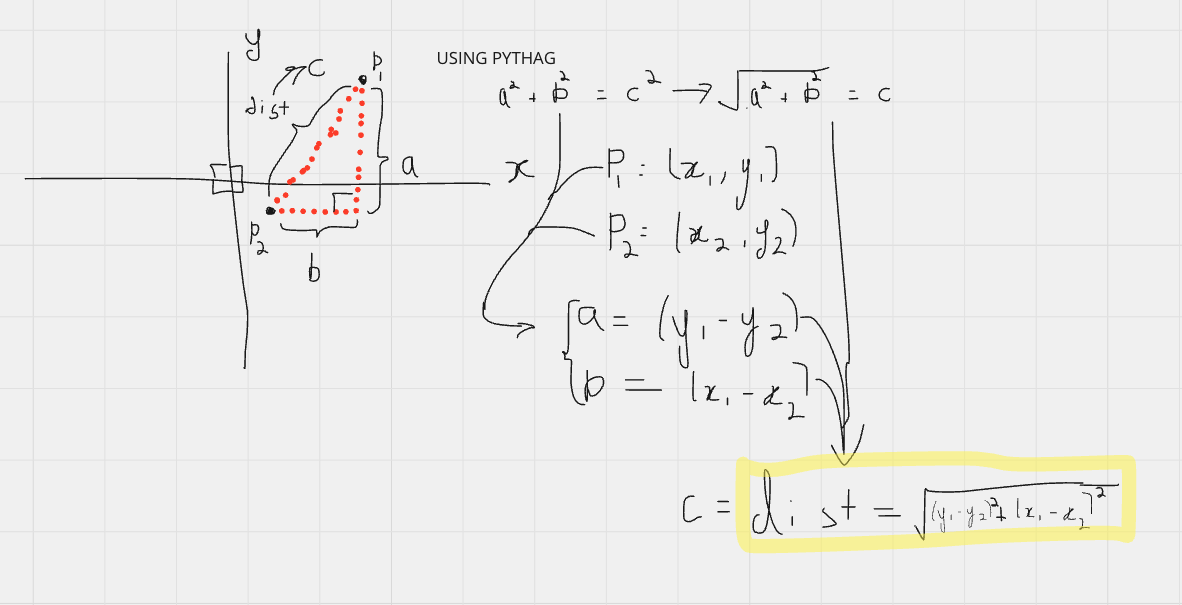 y
P₁
C
dist
a
x
P₂
b
USING PYTHAG
a² + b² = c² → √(a² + b²) = c
P₁ = (x₁, y₁)
P₂ = (x₂, y₂)
a = (y₁ - y₂)
b = (x₁ - x₂)
c = dist = √((y₁ - y₂)² + (x₁ - x₂)²)